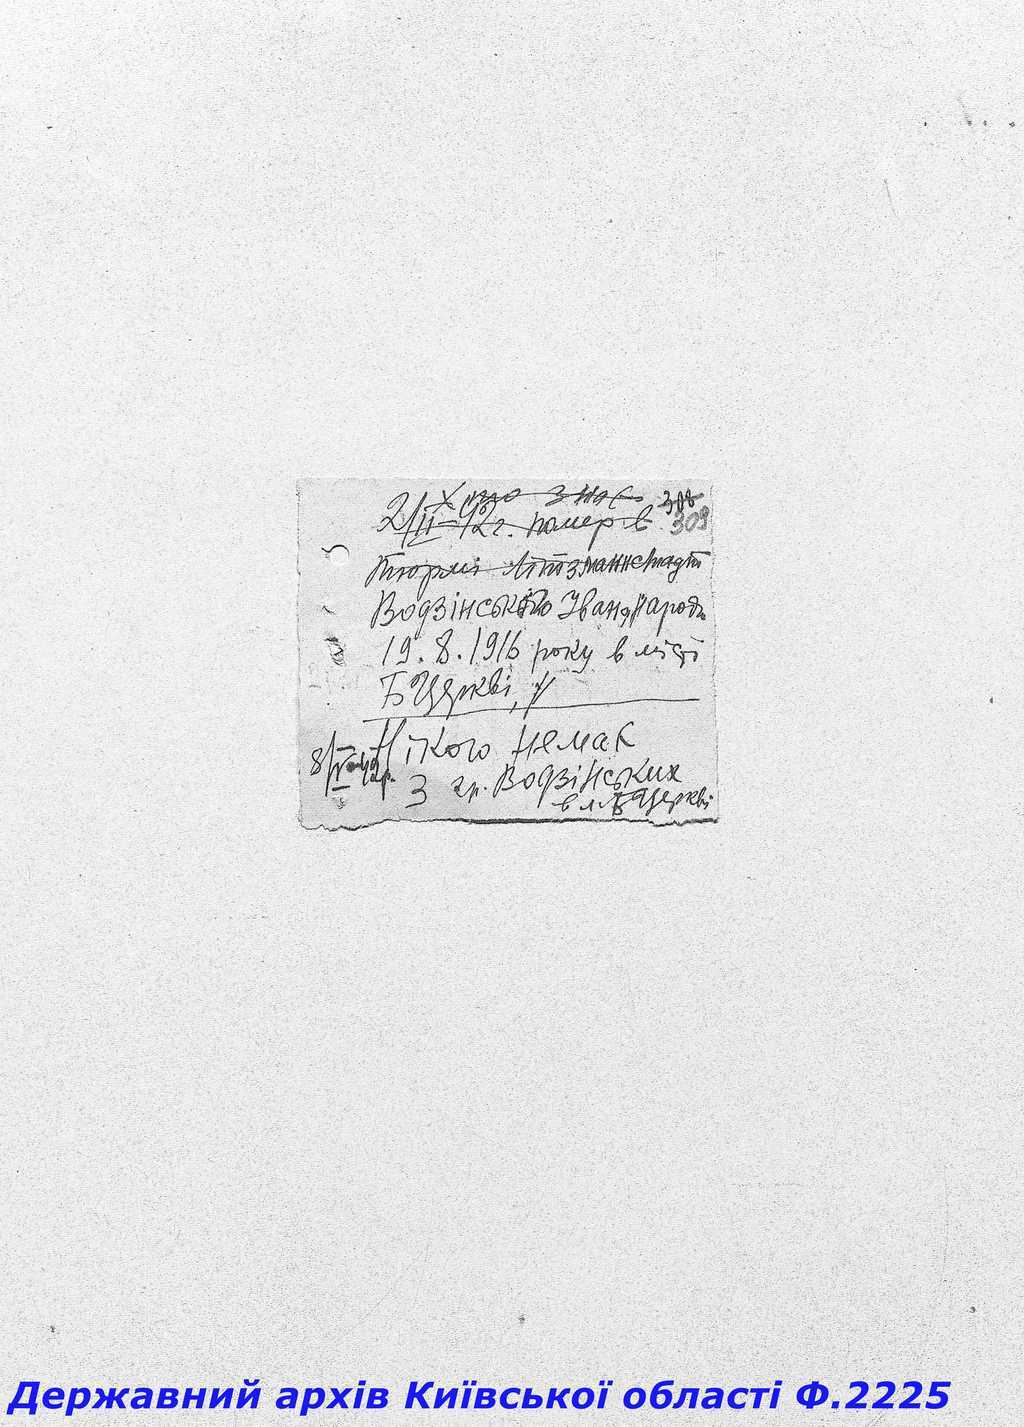 Хто знає 308
2/II-42г. помер в 309
тюрмі Літзманнстадт
Водзінського Івана народж
19.8.1916 року в місті
Б Церкві,
Нікого немає
8/IV-42р.
З гр. Водзінських
в м. Б Церкві
Державний архів Київської області Ф.2225